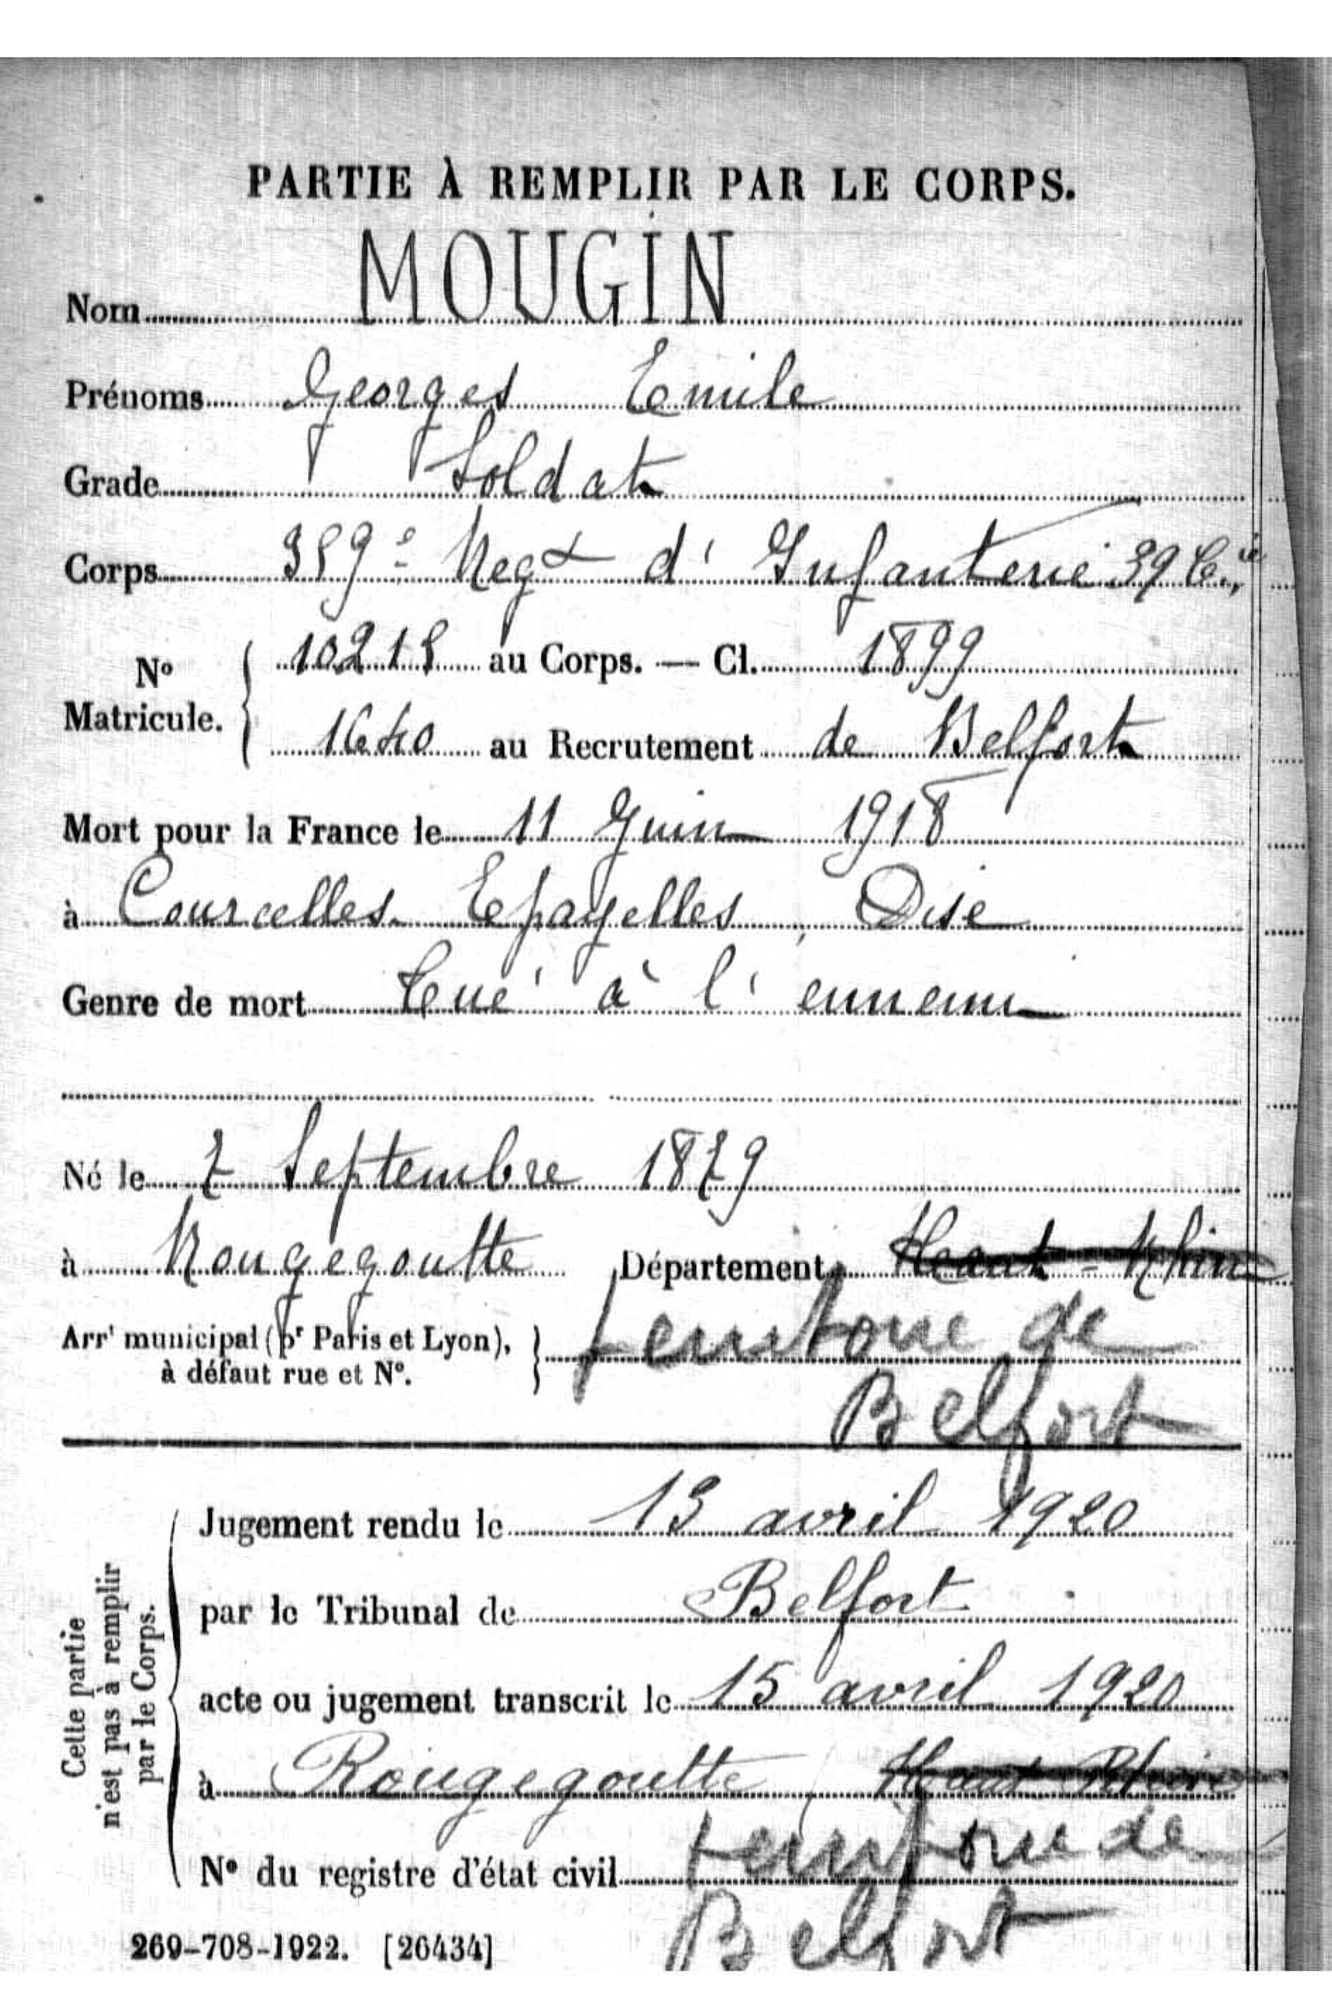 PARTIE À REMPLIR PAR LE CORPS.
Nom MOUGIN
Prénoms Georges Emile
Grade Soldat
Corps 359e Regt d'Infanterie 39 Cie
No Matricule. 10218 au Corps. — Cl. 1899
1640 au Recrutement de Belfort
Mort pour la France le 11 Juin 1918
à Courcelles Epayelles, Oise
Genre de mort Tué à l'ennemi
Né le 7 Septembre 1879
à Rougegoutte Département Haut-Rhin
Arrt municipal (pr Paris et Lyon),
à défaut rue et No.
territoire de
Belfort
Cette partie
n'est pas à remplir
par le Corps.
Jugement rendu le 13 avril 1920
par le Tribunal de Belfort
acte ou jugement transcrit le 15 avril 1920
à Rougegoutte Haut Rhin
territoire de
No du registre d'état civil
Belfort
269-708-1922. [26434]